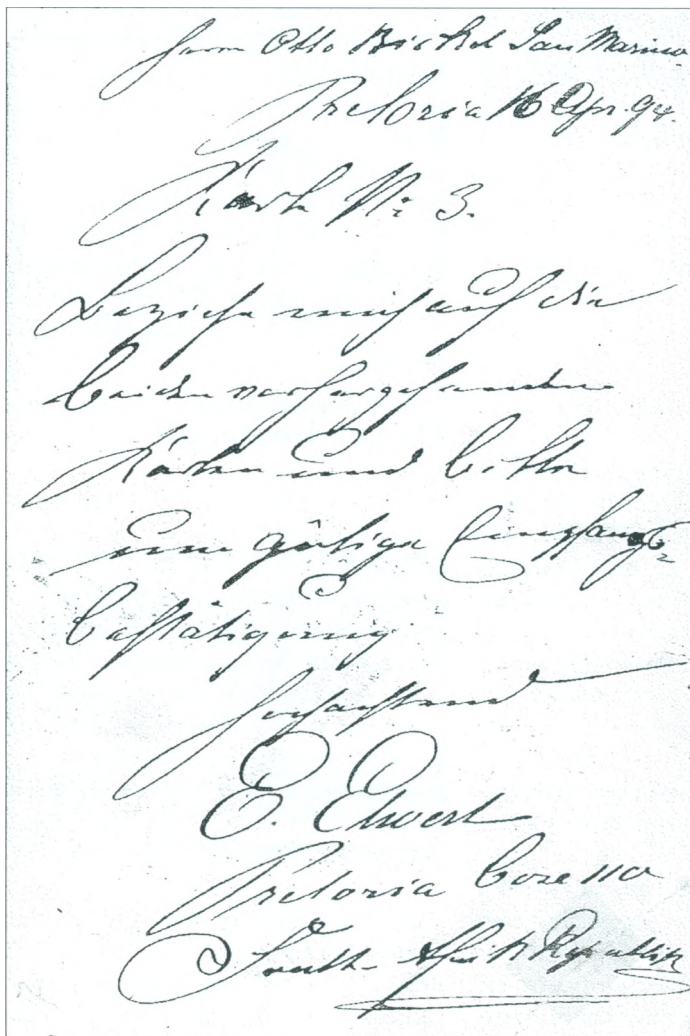 Herrn Otto Bickel San Marino.
Pretoria 16 Apr. 94.
Karte No 3.
Beziehe mich auf die
beiden vorhergehenden
Karten und bitte
um gütige Empfangs-
bestätigung
Hochachtend
E. Elwert
Pretoria Box 110
South Afrik Republik